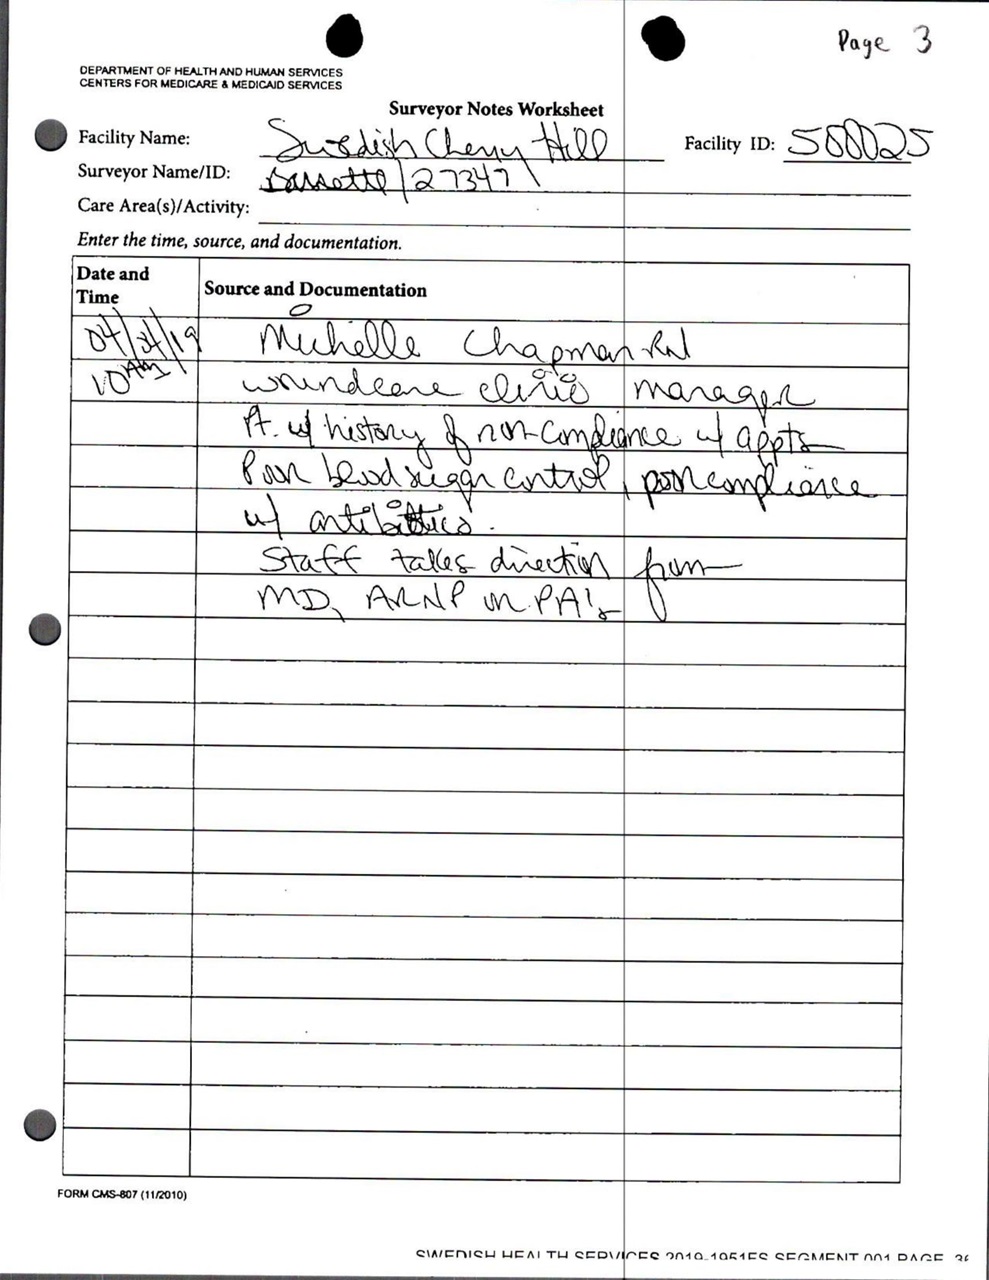 Page 3
DEPARTMENT OF HEALTH AND HUMAN SERVICES
CENTERS FOR MEDICARE & MEDICAID SERVICES
Surveyor Notes Worksheet
Facility Name: Swedish Cherry Hill Facility ID: 500025
Surveyor Name/ID: Bassette / 27347
Care Area(s)/Activity:
Enter the time, source, and documentation.
Date and Time Source and Documentation
Michelle Chapman RN
10 AM woundcare clinic manager
Pt. w/ history of non-compliance w/ appts
Poor blood sugar control, poor compliance
w/ antibiotics.
Staff takes direction from
MD, ARNP or PA's
FORM CMS-807 (11/2010)
SWEDISH HEALTH SERVICES 2019-1951ES SEGMENT 001 PAGE